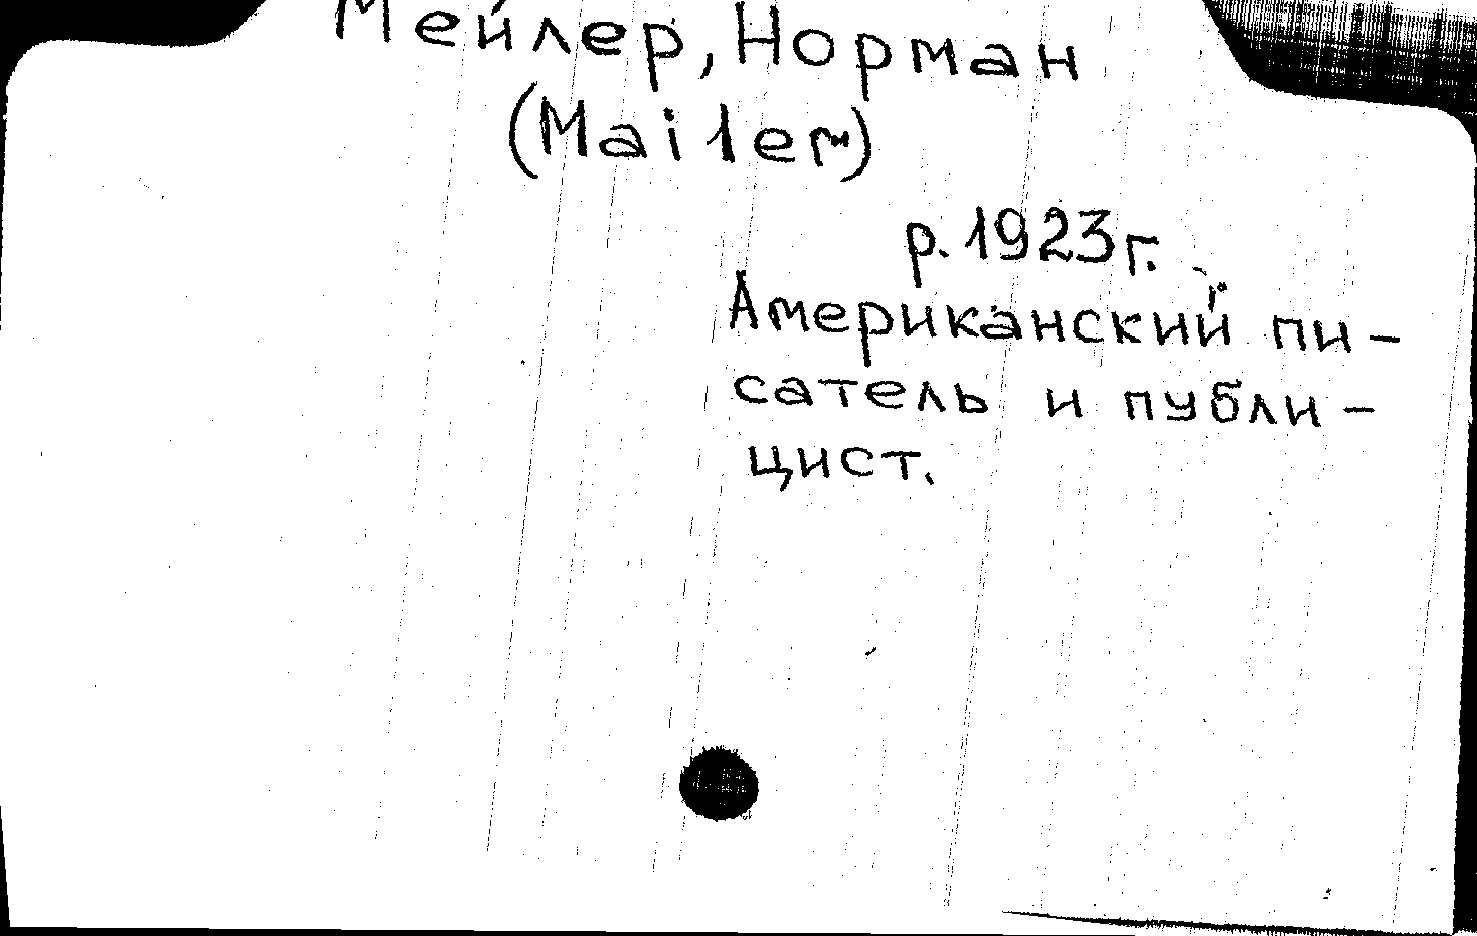 Мейлер, Норман
(Mailer)
р. 1923 г.
Американский пи-
сатель и публи-
цист.